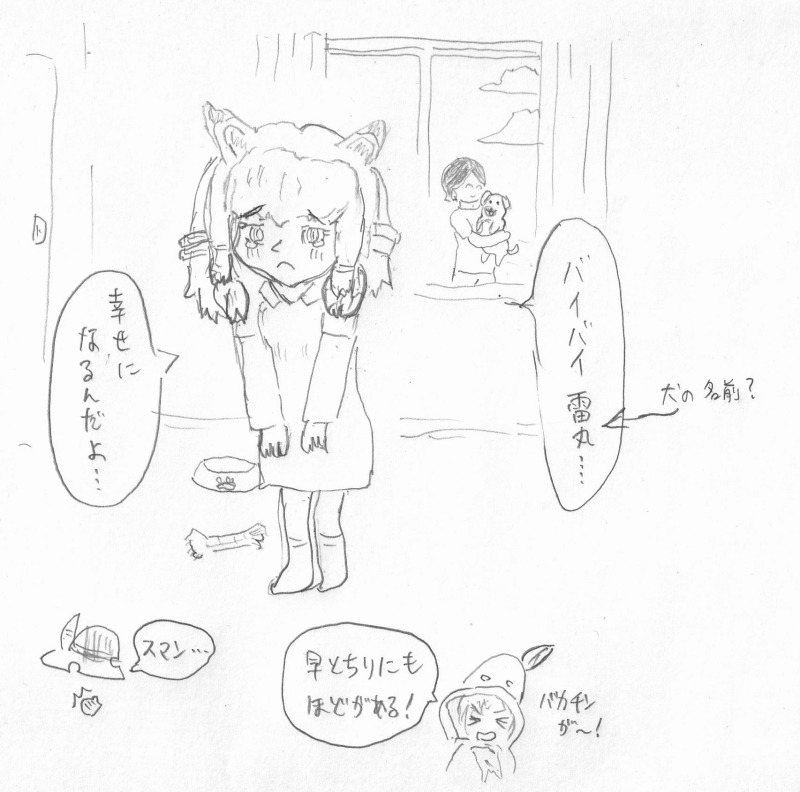 バイバイ 雷丸……
犬の名前?
幸せに
なるんだよ…
スマン…
早とちりにも
ほどがある!
バカチン
が〜!